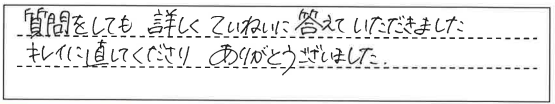 質問をしても 詳しく ていねいに 答えて いただきました
キレイに直してくださり ありがとうございました.